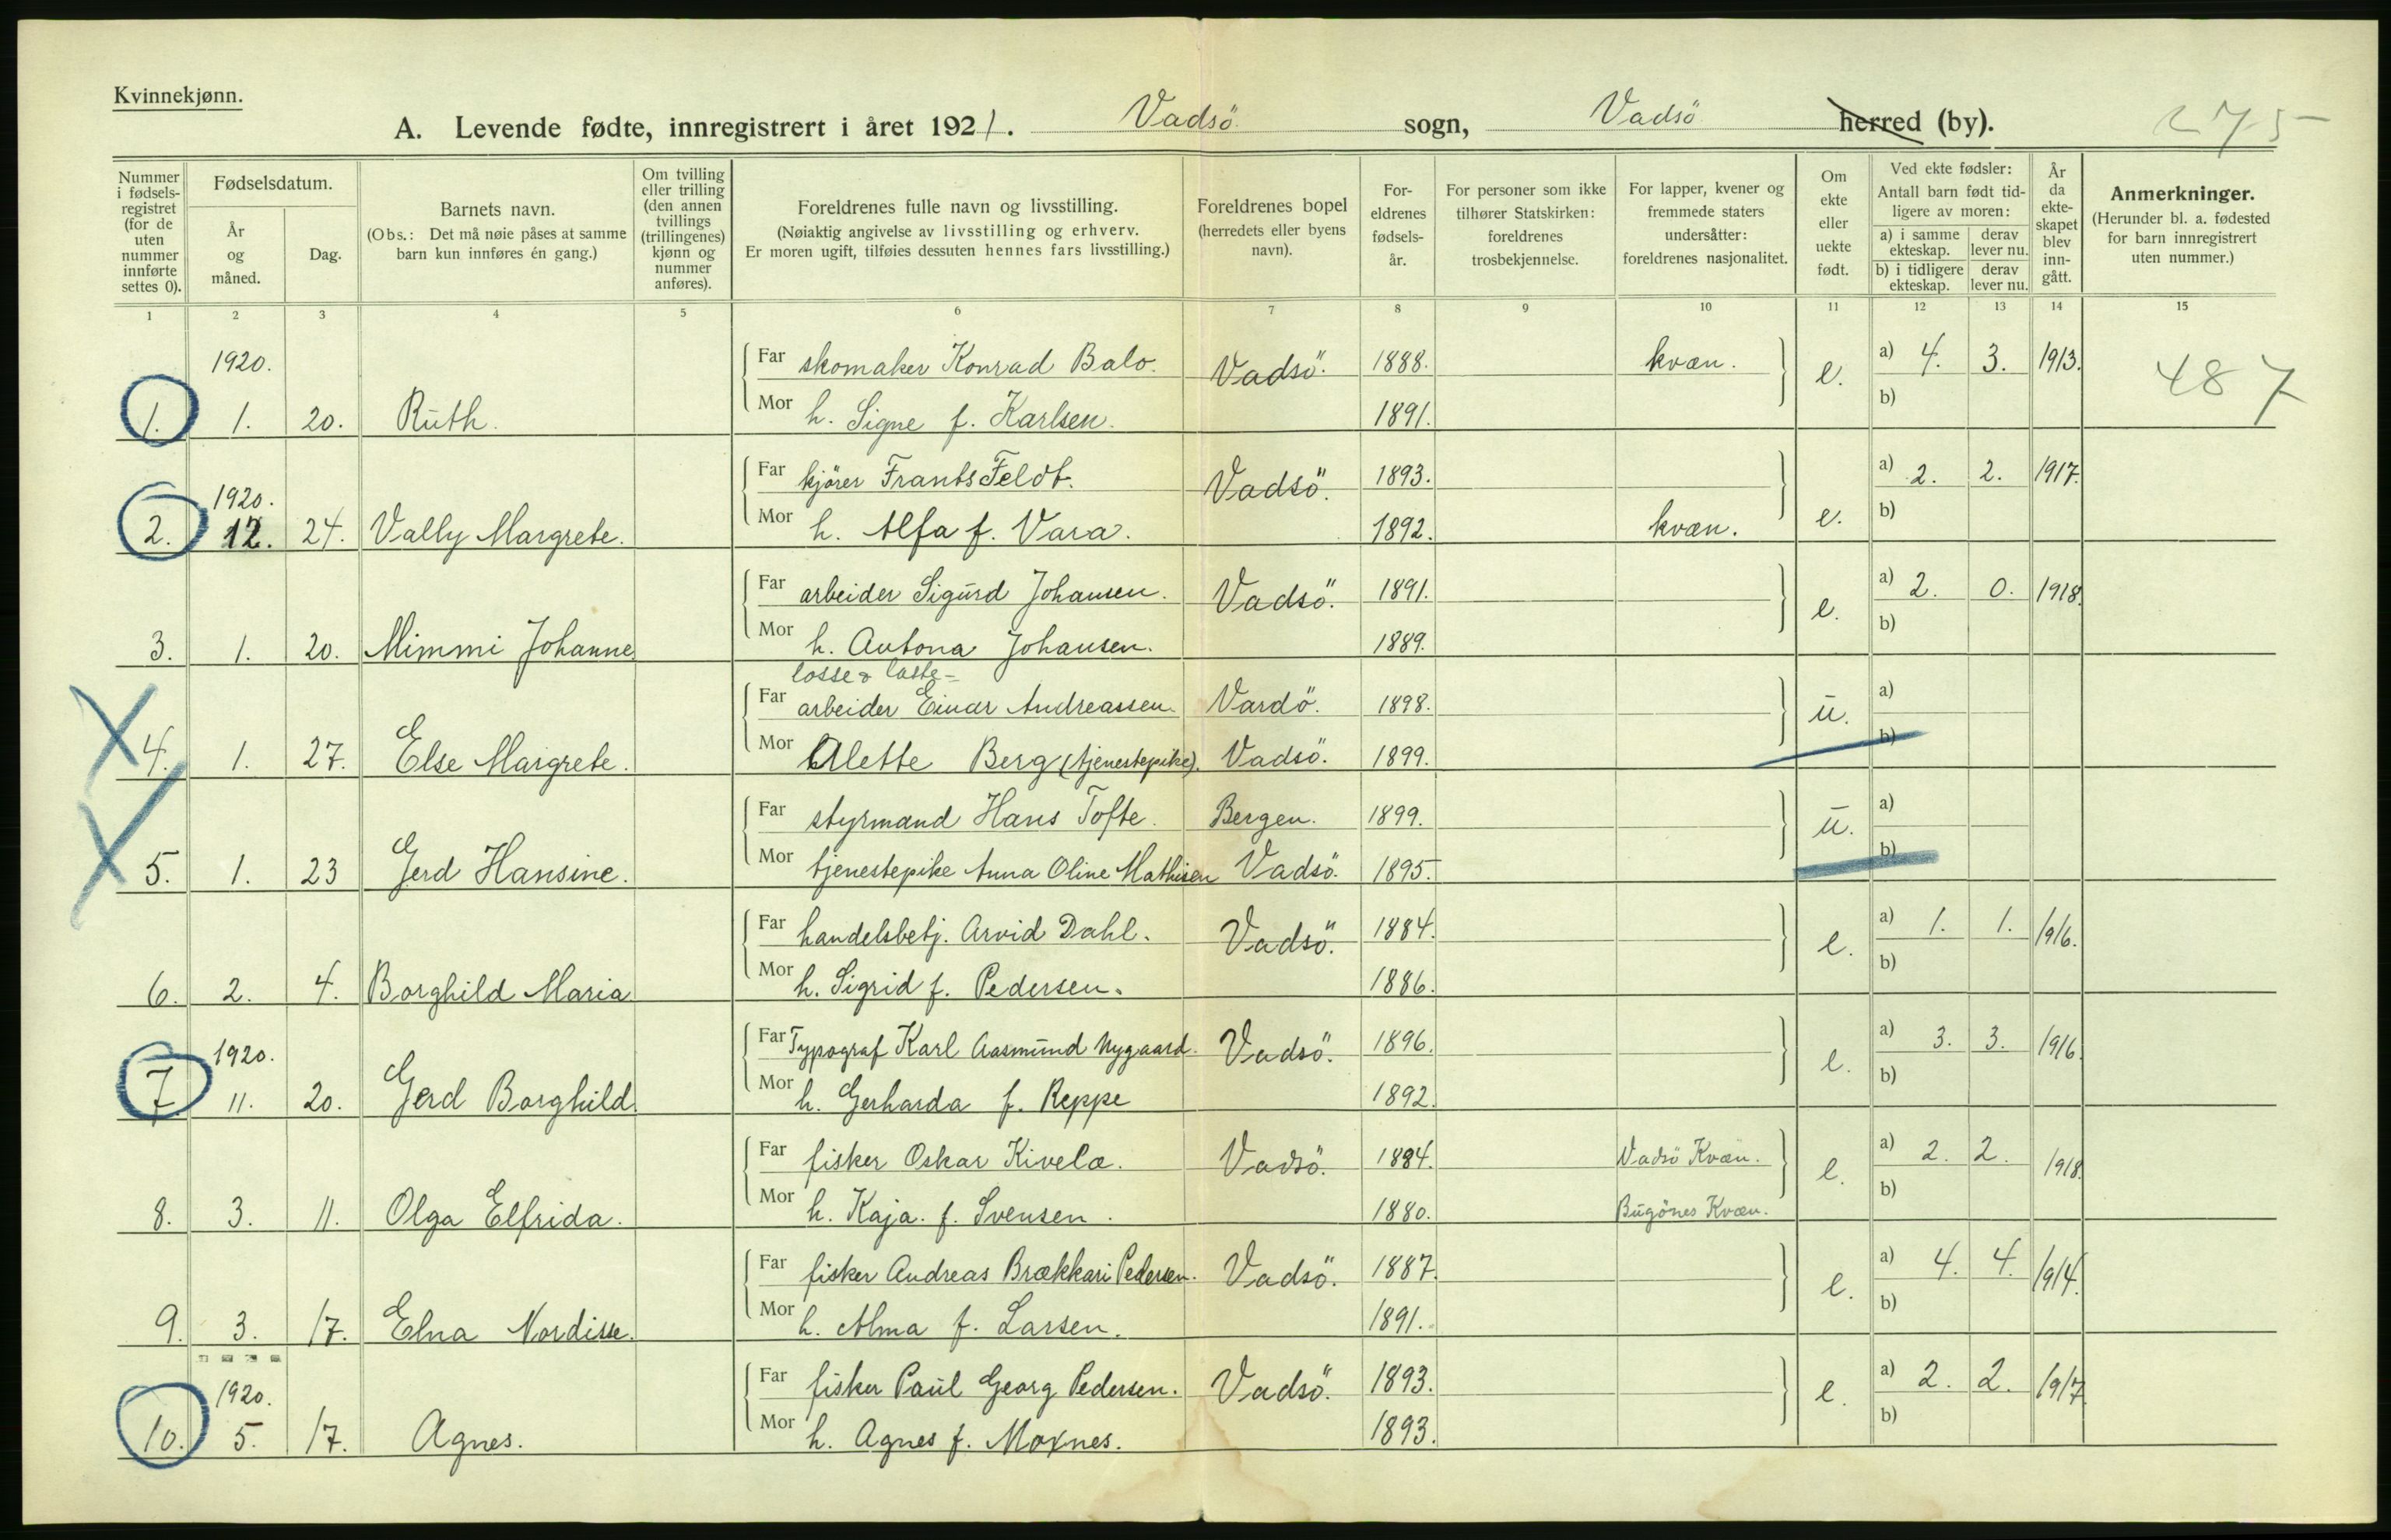 Kvinnekjønn.
A. Levende fødte, innregistrert i året 1921. Vadsö sogn, Vadsö herred (by). 275
Nummer i fødsels-registret (for de uten nummer innførte settes 0).
Fødselsdatum.
År og måned.
Dag.
Barnets navn.
(Obs.: Det må nøie påses at samme barn kun innføres én gang.)
Om tvilling eller trilling (den annen tvillings (trillingenes) kjønn og nummer anføres).
Foreldrenes fulle navn og livsstilling.
(Nøiaktig angivelse av livsstilling og erhverv.
Er moren ugift, tilføies dessuten hennes fars livsstilling.)
Foreldrenes bopel (herredets eller byens navn).
For-eldrenes fødsels-år.
For personer som ikke tilhører Statskirken: foreldrenes trosbekjennelse.
For lapper, kvener og fremmede staters undersåtter: foreldrenes nasjonalitet.
Om ekte eller uekte født.
Ved ekte fødsler:
Antall barn født tid-ligere av moren:
a) i samme ekteskap. derav lever nu.
b) i tidligere ekteskap. derav lever nu.
År da ekte-skapet blev inn-gått.
Anmerkninger.
(Herunder bl. a. fødested for barn innregistrert uten nummer.)
1 2 3 4 5 6 7 8 9 10 11 12 13 14 15
1920. Far skomaker Konrad Balo. Vadsö. 1888. kvæn. e. a) 4. 3. 1913. 487
1. 1. 20. Ruth. Mor h. Signe f. Karlsen. 1891. b)
1920. Far kjörer Frants Feldt. Vadsö. 1893. e. a) 2. 2. 1917.
2. 12. 24. Vally Margrete. Mor h. Alfa f. Vara. 1892. kvæn. b)
Far arbeider Sigurd Johansen. Vadsö. 1891. e. a) 2. 0. 1918.
3. 1. 20. Mimmi Johanne Mor h. Antona Johansen. 1889. b)
losse & laste-
Far arbeider Einar Andreassen. Vardö. 1898. u. a)
4. 1. 27. Else Margrete. Mor Alette Berg (tjenestepike). Vadsö. 1899. b)
Far styrmand Hans Tofte. Bergen. 1899. u. a)
5. 1. 23 Gerd Hansine. Mor tjenestepike Anna Oline Mathisen Vadsö. 1895. b)
Far handelsbetj. Arvid Dahl. Vadsö. 1884. e. a) 1. 1. 1916.
6. 2. 4. Borghild Maria Mor h. Sigrid f. Pedersen. 1886. b)
1920. Far Typograf Karl Aasmund Nygaard. Vadsö. 1896. e. a) 3. 3. 1916.
7 11. 20. Gerd Borghild. Mor h. Gerharda f. Reppe 1892. b)
Far fisker Oskar Kivela. Vadsö. 1884. Vadsö Kvæn. e. a) 2. 2. 1918.
8. 3. 11. Olga Elfrida. Mor h. Kaja. f. Svensen. 1880. Bugönes Kvæn. b)
Far fisker Andreas Brækkari Pedersen. Vadsö. 1887. e. a) 4. 4. 1914.
9. 3. 17. Elna Nordisse. Mor h. Alma f. Larsen. 1891. b)
1920. Far fisker Paul Georg Pedersen. Vadsö. 1893. e. a) 2. 2. 1917.
10. 5. 17. Agnes. Mor h. Agnes f. Moxnes. 1893. b)